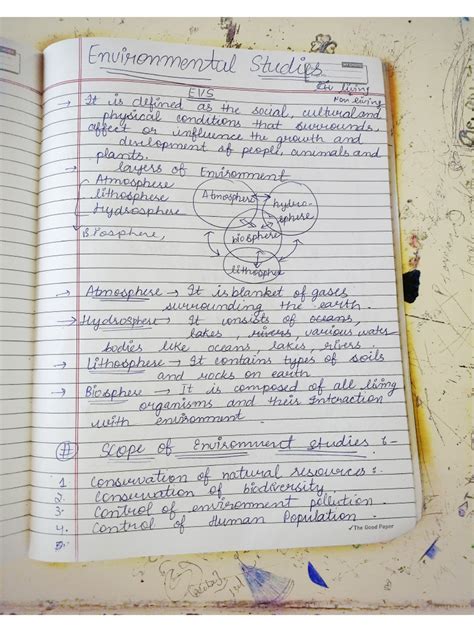 Environmental Studies.
living
EVS
Non living
→ It is defined as the social, cultural and
physical conditions that surrounds,
affect or influence the growth and
development of people, animals and
plants.
→ layers of Environment
Atmosphere
lithosphere
Hydrosphere
Biosphere,
Atmosphere
hydro-
sphere
biosphere
lithosphere
→ Atmosphere → It is blanket of gases
surrounding the earth.
→ Hydrosphere → It consists of oceans,
lakes, rivers, various water
bodies like oceans, lakes, rivers.
→ Lithosphere → It contains types of soils
and rocks on earth
→ Biosphere → It is composed of all living
organisms and their interaction
with environment.
# Scope of Environment studies :-
1. Conservation of natural resources :-
2. Conservation of biodiversity
3. Control of environment pollution
4. Control of Human Population.
5.
✓ The Good Paper